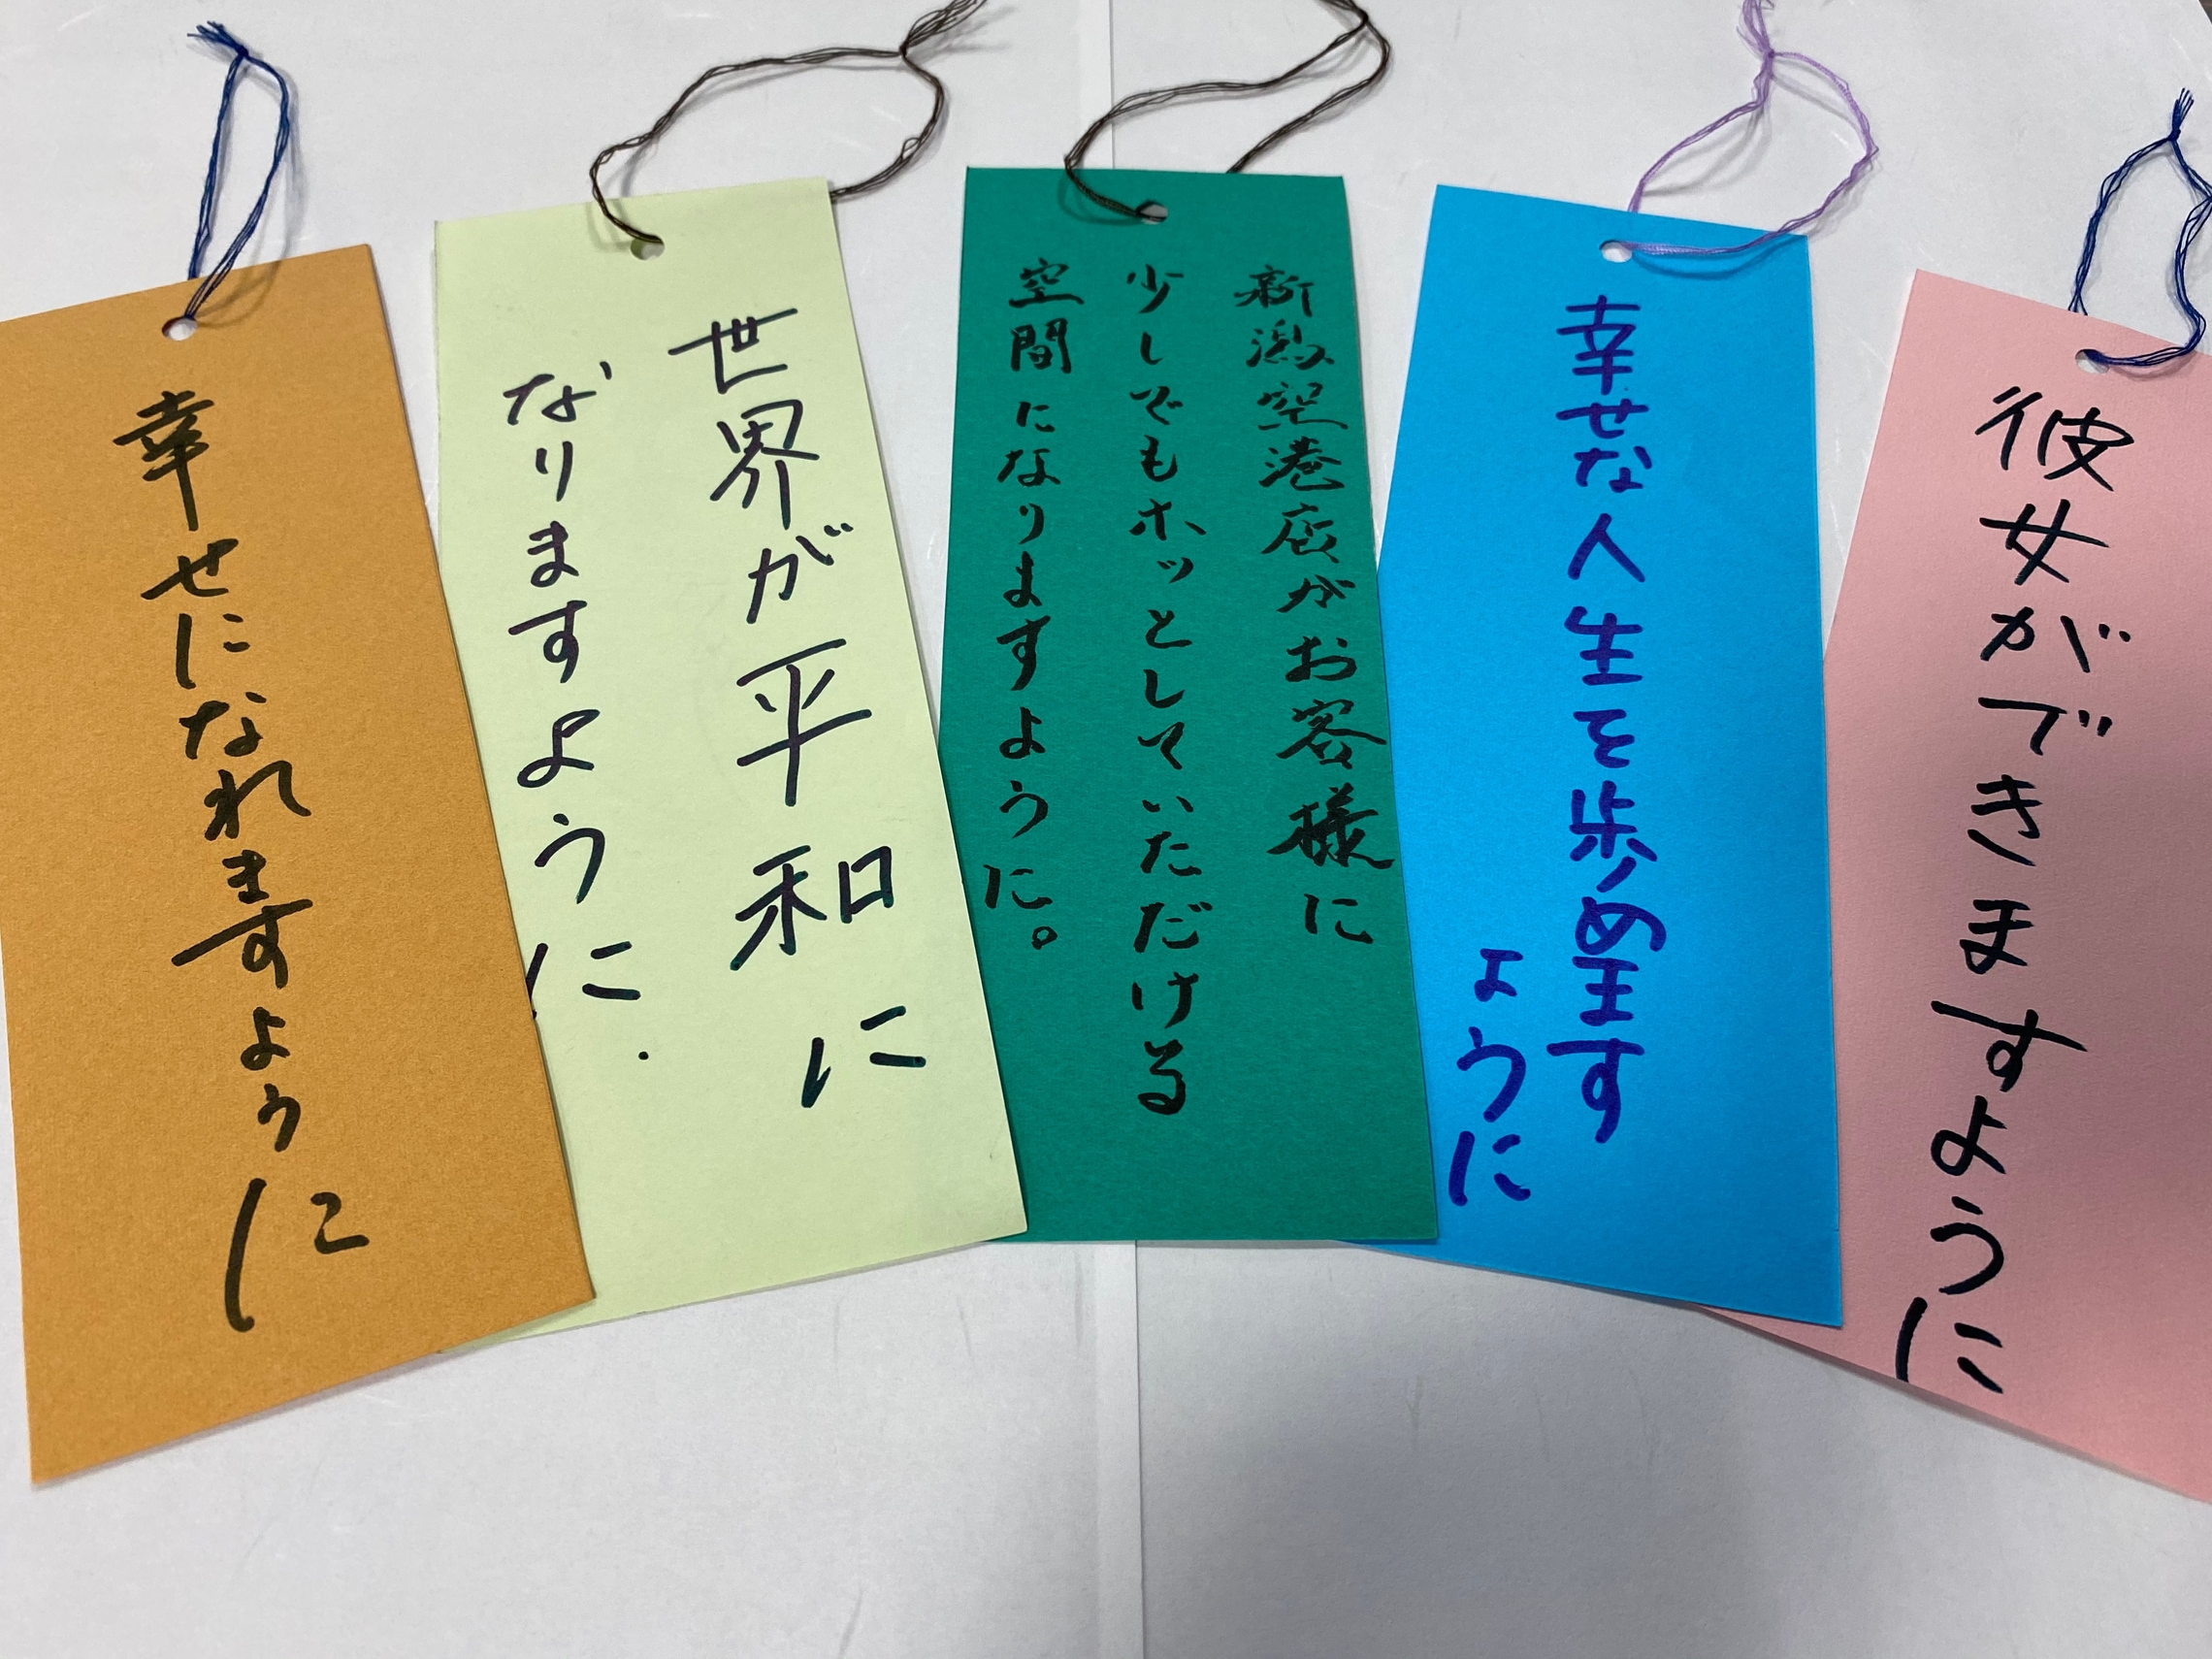 幸せになれますように
世界が平和に
なりますように.
新潟空港店がお客様に
少しでもホッとしていただける
空間になりますように。
幸せな人生を歩めます
ように
彼女ができますように